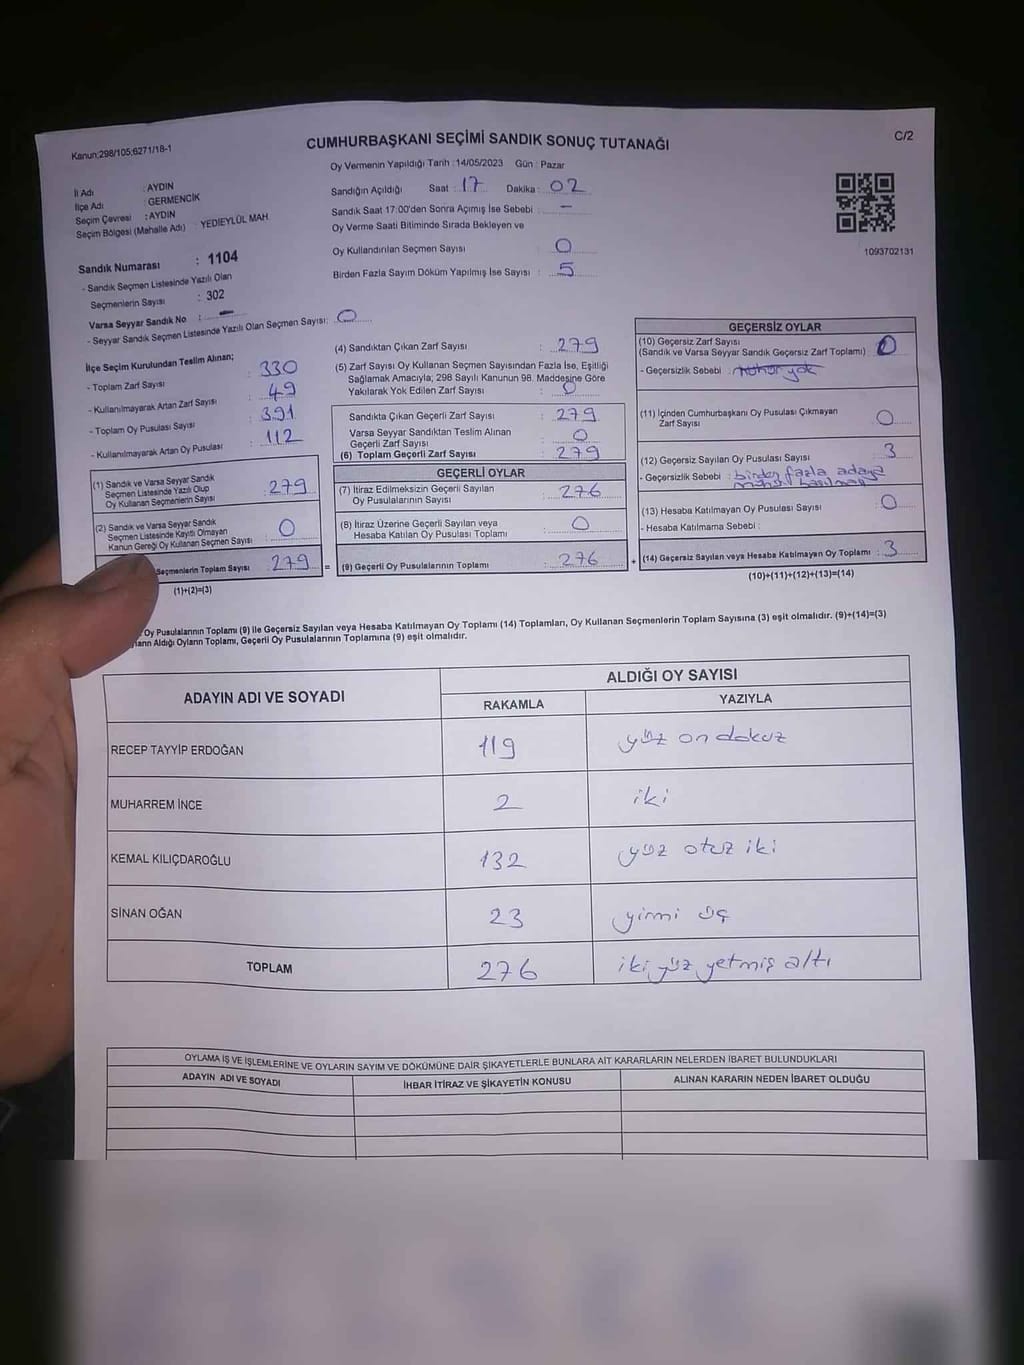 Kanun;298/105;6271/18-1
C/2
CUMHURBAŞKANI SEÇİMİ SANDIK SONUÇ TUTANAĞI
Oy Vermenin Yapıldığı Tarih :14/05/2023 Gün : Pazar
İl Adı : AYDIN
İlçe Adı : GERMENCİK
Seçim Çevresi : AYDIN
Seçim Bölgesi (Mahalle Adı) : YEDİEYLÜL MAH.
Sandığın Açıldığı Saat : 17 Dakika : 02
Sandık Saat 17:00'den Sonra Açımış İse Sebebi : -
Oy Verme Saati Bitiminde Sırada Bekleyen ve
Oy Kullandırılan Seçmen Sayısı : 0
Birden Fazla Sayım Döküm Yapılmış İse Sayısı : 5
1093702131
Sandık Numarası : 1104
- Sandık Seçmen Listesinde Yazılı Olan
Seçmenlerin Sayısı : 302
Varsa Seyyar Sandık No : -
- Seyyar Sandık Seçmen Listesinde Yazılı Olan Seçmen Sayısı: 0
İlçe Seçim Kurulundan Teslim Alınan;
- Toplam Zarf Sayısı : 330
- Kullanılmayarak Artan Zarf Sayısı : 49
- Toplam Oy Pusulası Sayısı : 391
- Kullanılmayarak Artan Oy Pusulası : 112
(1) Sandık ve Varsa Seyyar Sandık
Seçmen Listesinde Yazılı Olup
Oy Kullanan Seçmenlerin Sayısı : 279
(2) Sandık ve Varsa Seyyar Sandık
Seçmen Listesinde Kayıtlı Olmayan
Kanun Gereği Oy Kullanan Seçmen Sayısı : 0
Seçmenlerin Toplam Sayısı : 279 =
(1)+(2)=(3)
(4) Sandıktan Çıkan Zarf Sayısı : 279
(5) Zarf Sayısı Oy Kullanan Seçmen Sayısından Fazla İse, Eşitliği
Sağlamak Amacıyla; 298 Sayılı Kanunun 98. Maddesine Göre
Yakılarak Yok Edilen Zarf Sayısı : 0
Sandıkta Çıkan Geçerli Zarf Sayısı : 279
Varsa Seyyar Sandıktan Teslim Alınan
Geçerli Zarf Sayısı : 0
(6) Toplam Geçerli Zarf Sayısı : 279
GEÇERLİ OYLAR
(7) İtiraz Edilmeksizin Geçerli Sayılan
Oy Pusulalarının Sayısı : 276
(8) İtiraz Üzerine Geçerli Sayılan veya
Hesaba Katılan Oy Pusulası Toplamı : 0
(9) Geçerli Oy Pusulalarının Toplamı : 276 +
GEÇERSİZ OYLAR
(10) Geçersiz Zarf Sayısı
(Sandık ve Varsa Seyyar Sandık Geçersiz Zarf Toplamı) : 0
- Geçersizlik Sebebi :
(11) İçinden Cumhurbaşkanı Oy Pusulası Çıkmayan
Zarf Sayısı : 0
(12) Geçersiz Sayılan Oy Pusulası Sayısı : 3
- Geçersizlik Sebebi : birden fazla adaya
(13) Hesaba Katılmayan Oy Pusulası Sayısı : 0
- Hesaba Katılmama Sebebi :
(14) Geçersiz Sayılan veya Hesaba Katılmayan Oy Toplamı : 3
(10)+(11)+(12)+(13)=(14)
Oy Pusulalarının Toplamı (9) ile Geçersiz Sayılan veya Hesaba Katılmayan Oy Toplamı (14) Toplamları, Oy Kullanan Seçmenlerin Toplam Sayısına (3) eşit olmalıdır. (9)+(14)=(3)
Aldığı Oyların Toplamı, Geçerli Oy Pusulalarının Toplamına (9) eşit olmalıdır.
ADAYIN ADI VE SOYADI
ALDIĞI OY SAYISI
RAKAMLA YAZIYLA
RECEP TAYYİP ERDOĞAN 119 yüz on dokuz
MUHARREM İNCE 2 iki
KEMAL KILIÇDAROĞLU 132 yüz otuz iki
SİNAN OĞAN 23 yirmi üç
TOPLAM 276 iki yüz yetmiş altı
OYLAMA İŞ VE İŞLEMLERİNE VE OYLARIN SAYIM VE DÖKÜMÜNE DAİR ŞİKAYETLERLE BUNLARA AİT KARARLARIN NELERDEN İBARET BULUNDUKLARI
ADAYIN ADI VE SOYADI İHBAR İTİRAZ VE ŞİKAYETİN KONUSU ALINAN KARARIN NEDEN İBARET OLDUĞU